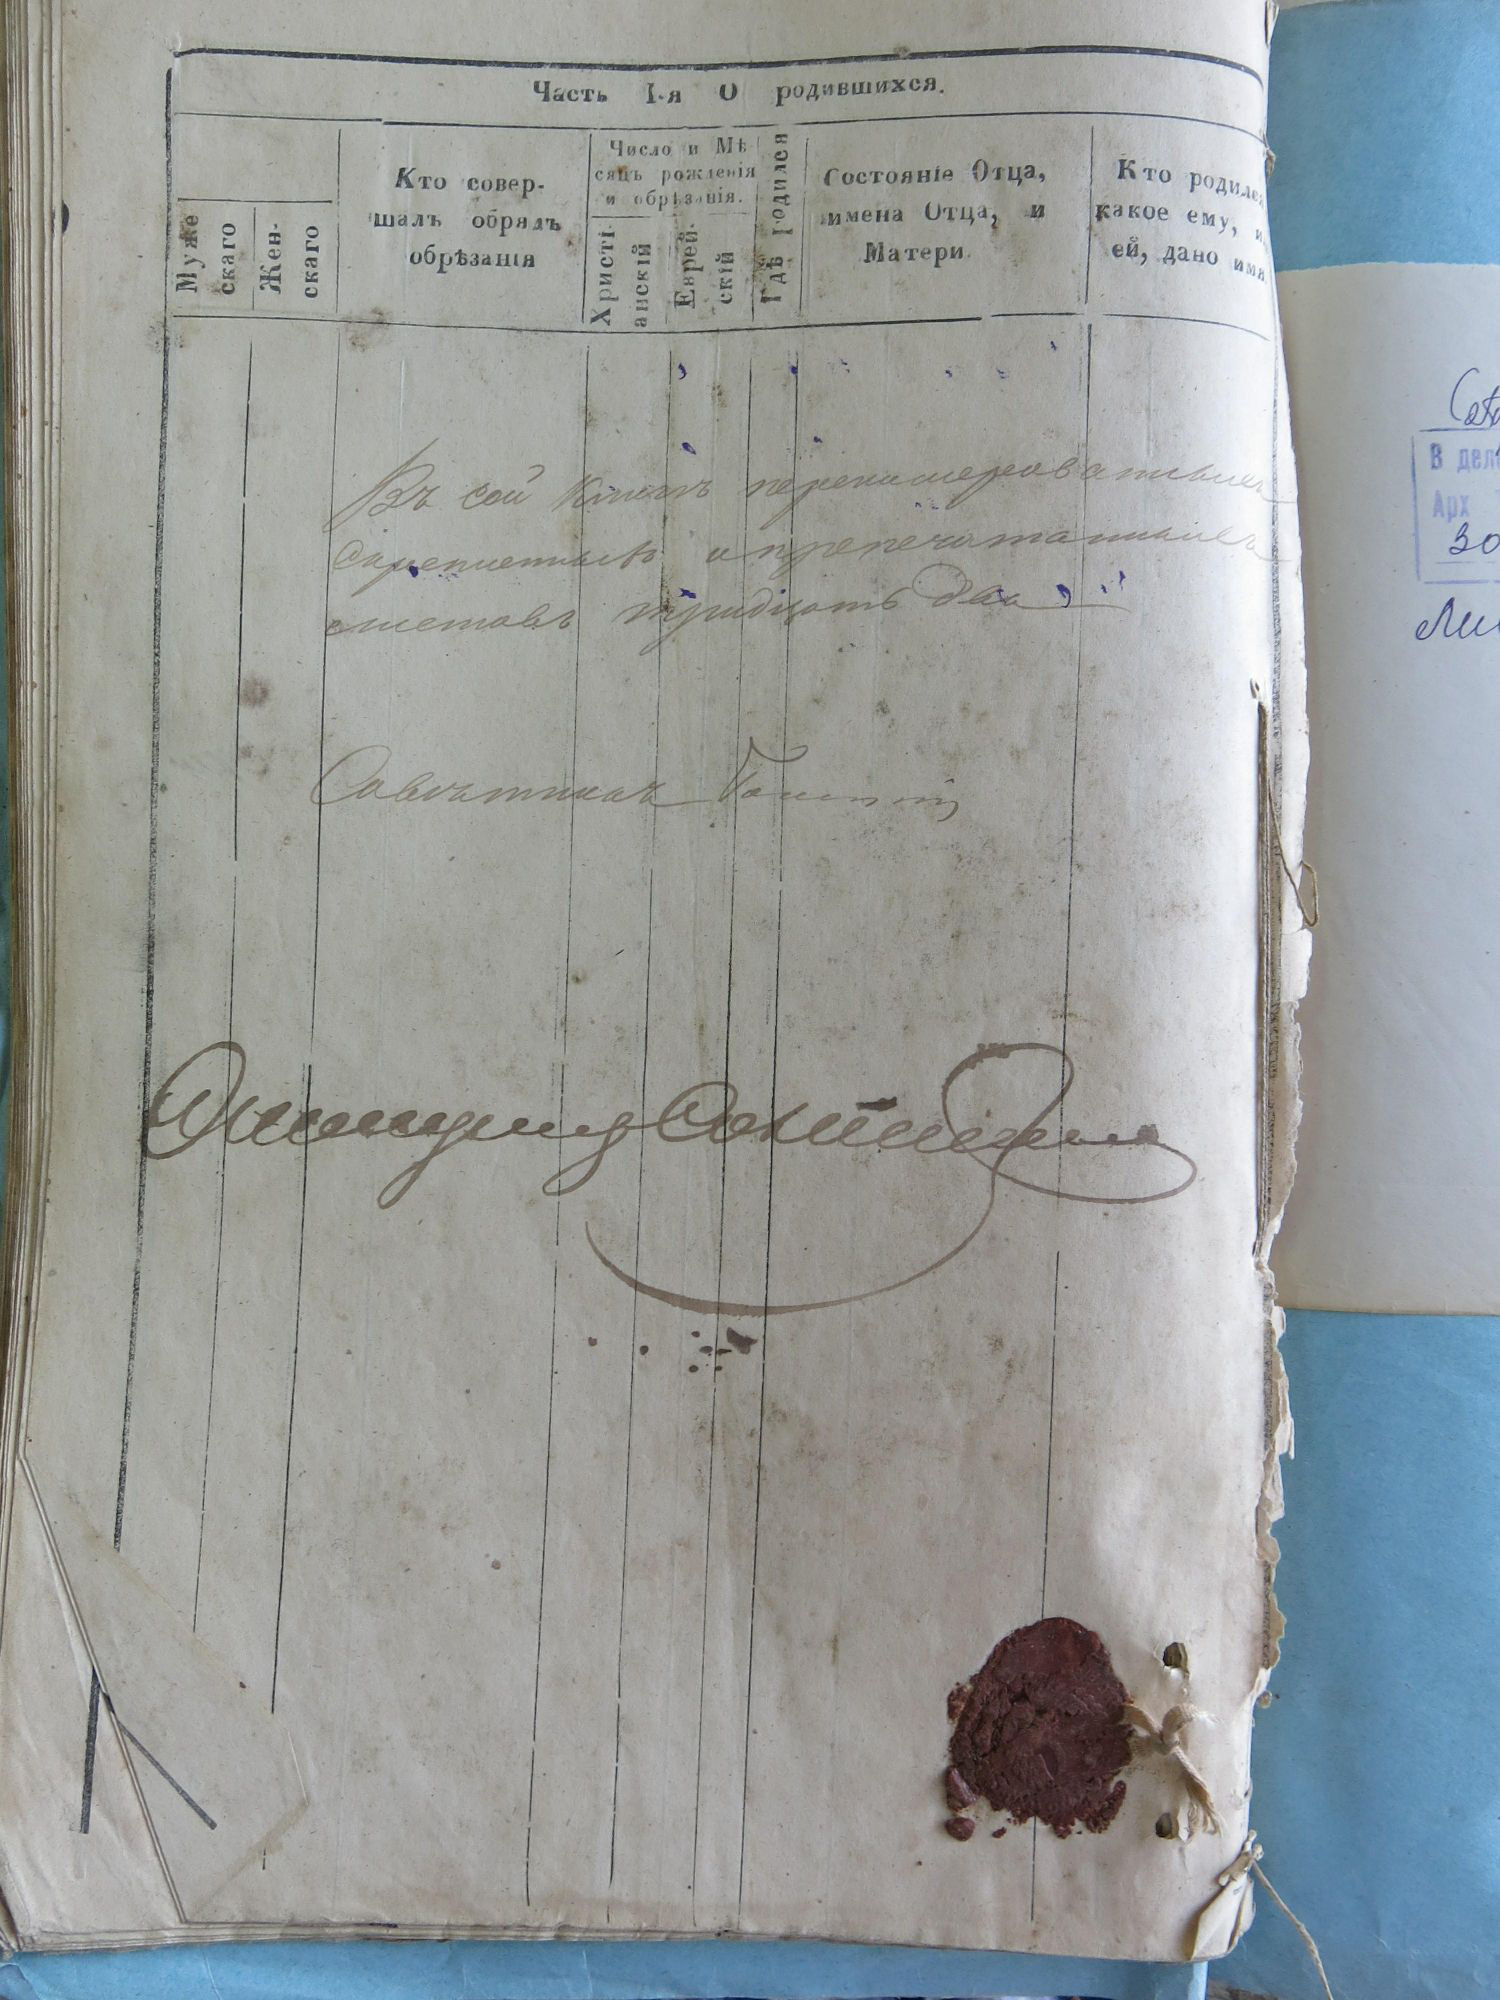 Часть I-я О родившихся.
Муже
скаго
Жен-
скаго
Кто совер-
шалъ обрядъ
обрѣзанія
Число и Мѣ
сяцъ рожденія
и обрѣзанія.
Христі
анскій
Еврей-
скій
Гдѣ родился
Состояніе Отца,
имена Отца, и
Матери
Кто родился
какое ему, и
ей, дано имя
Въ сей книгѣ перенумерованныхъ
скрепленныхъ и препечатанныхъ
листовъ тридцать два
Совѣтникъ
В дел
Арх
30
Лис